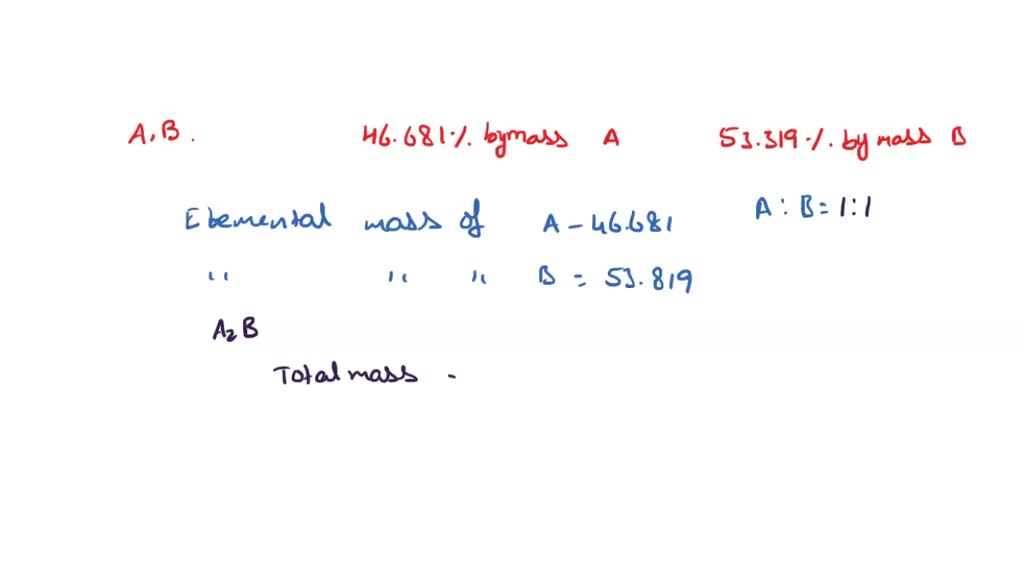 A, B. 46.681 % by mass A 53.319 % by mass B
Elemental mass of A - 46.681 A : B = 1 : 1
" " " B = 53.819
A₂B
Total mass -